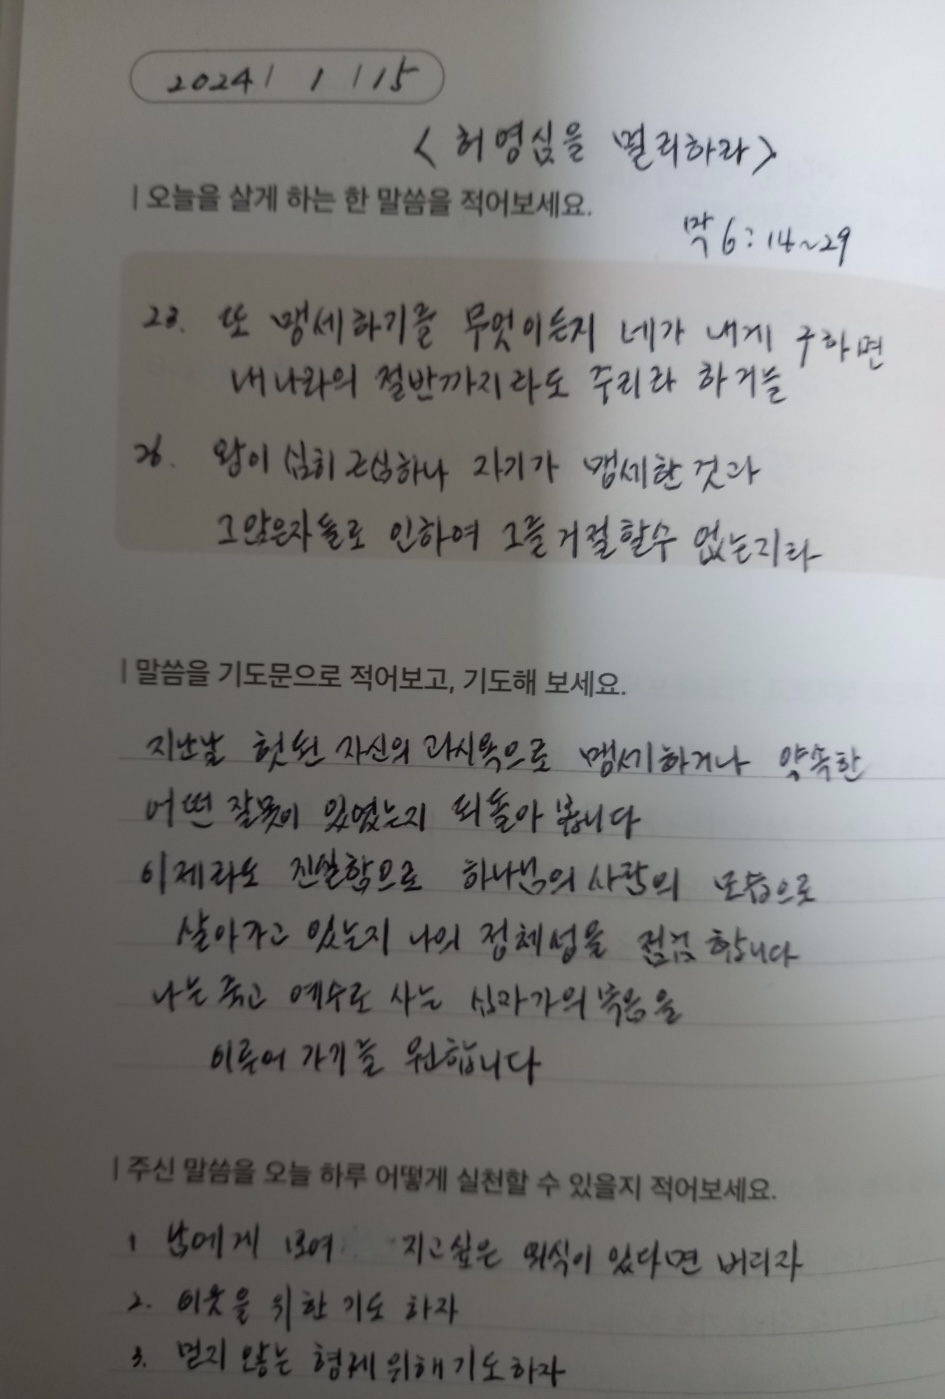 2024 / 1 / 15
<허영심을 멀리하라>
| 오늘을 살게 하는 한 말씀을 적어보세요.
막 6: 14~29
23. 또 맹세하기를 무엇이든지 네가 내게 구하면
내 나라의 절반까지라도 주리라 하거늘
26. 왕이 심히 근심하나 자기가 맹세한 것과
그 앉은자들로 인하여 그를 거절할수 없는지라
| 말씀을 기도문으로 적어보고, 기도해 보세요.
지난날 헛된 자신의 과시욕으로 맹세하거나 약속한
어떤 잘못이 있었는지 되돌아 봅니다
이제라도 진실함으로 하나님의 사람의 모습으로
살아가고 있는지 나의 정체성을 점검 합니다
나는 죽고 예수로 사는 십자가의 복음을
이루어 가기를 원합니다
| 주신 말씀을 오늘 하루 어떻게 실천할 수 있을지 적어보세요.
1 남에게 보여 지고싶은 의식이 있다면 버리자
2. 이웃을 위한 기도 하자
3. 믿지 않는 형제 위해 기도하자